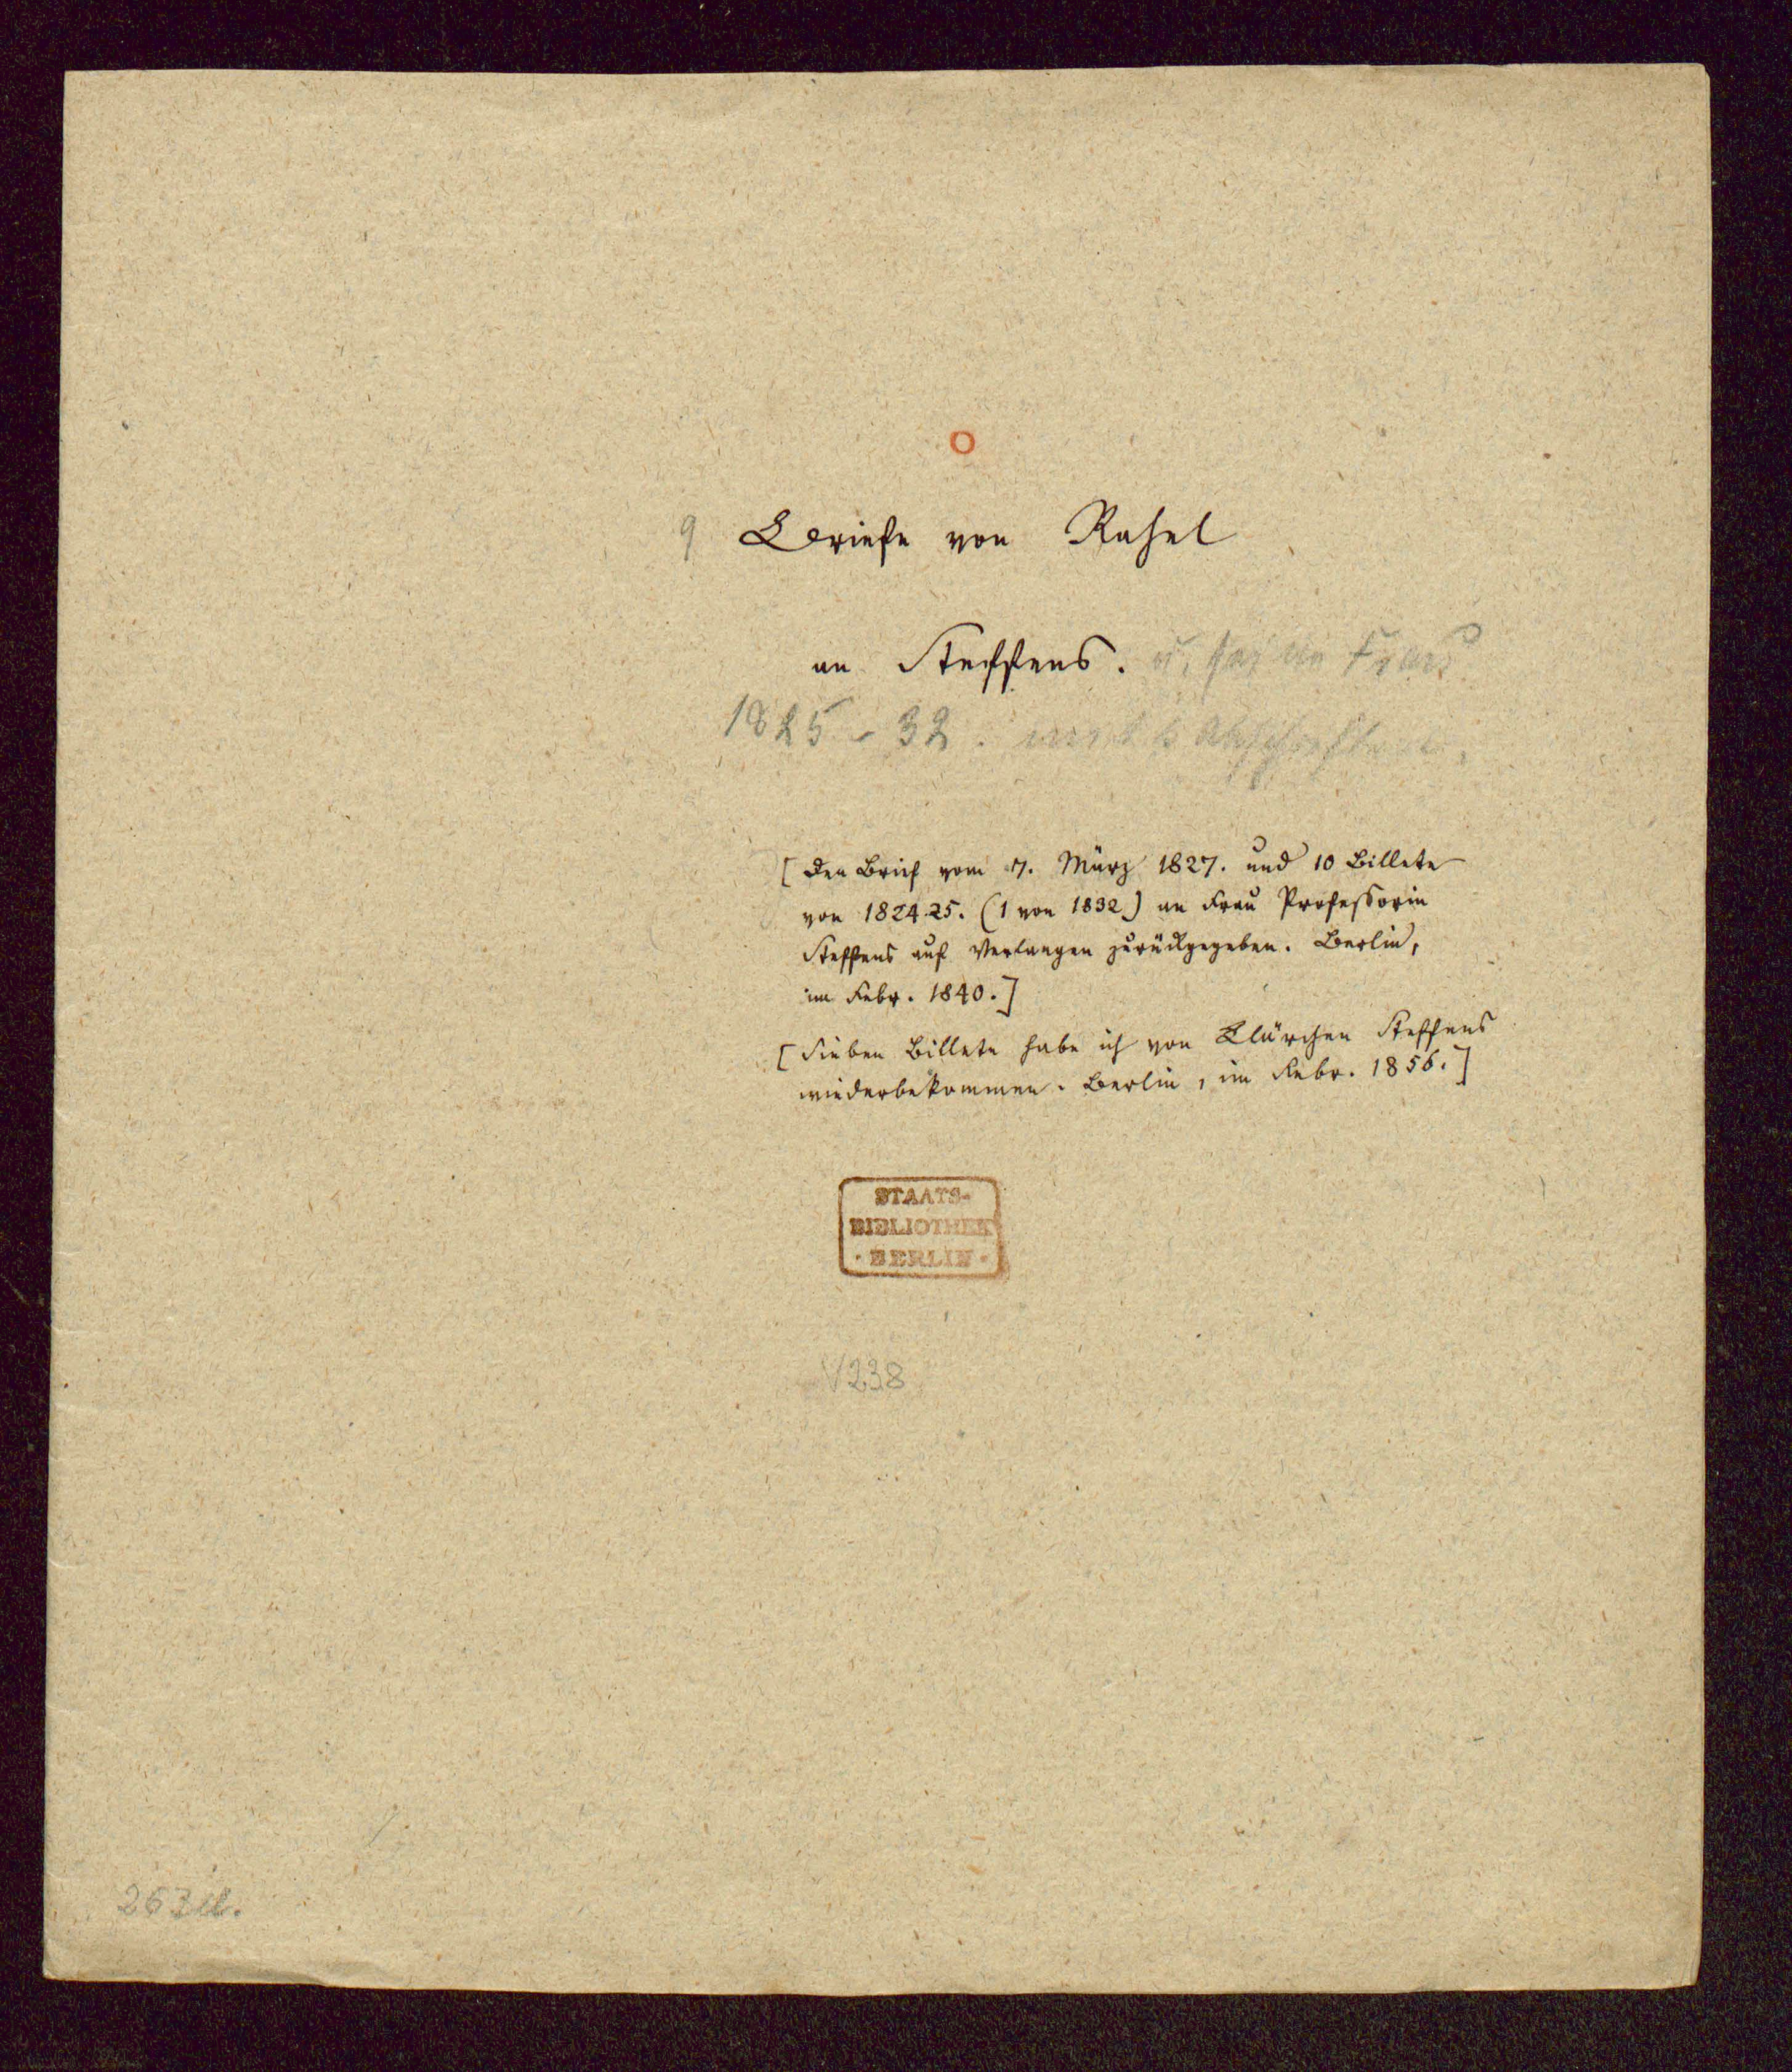 o
9 Briefe von Rahel
an Steffens. u. seine Frau
1825-32. und 6 Abschriften.
[Den Brief vom 7. März 1827. und 10 Billete
von 1824.25. (1 von 1832) an Frau Professorin
Steffens auf Verlangen zurückgegeben. Berlin,
im Febr. 1840.]
[Sieben Billete habe ich von Clärchen Steffens
wiederbekommen. Berlin, im Febr. 1856.]
STAATS-
BIBLIOTHEK
· BERLIN ·
V238